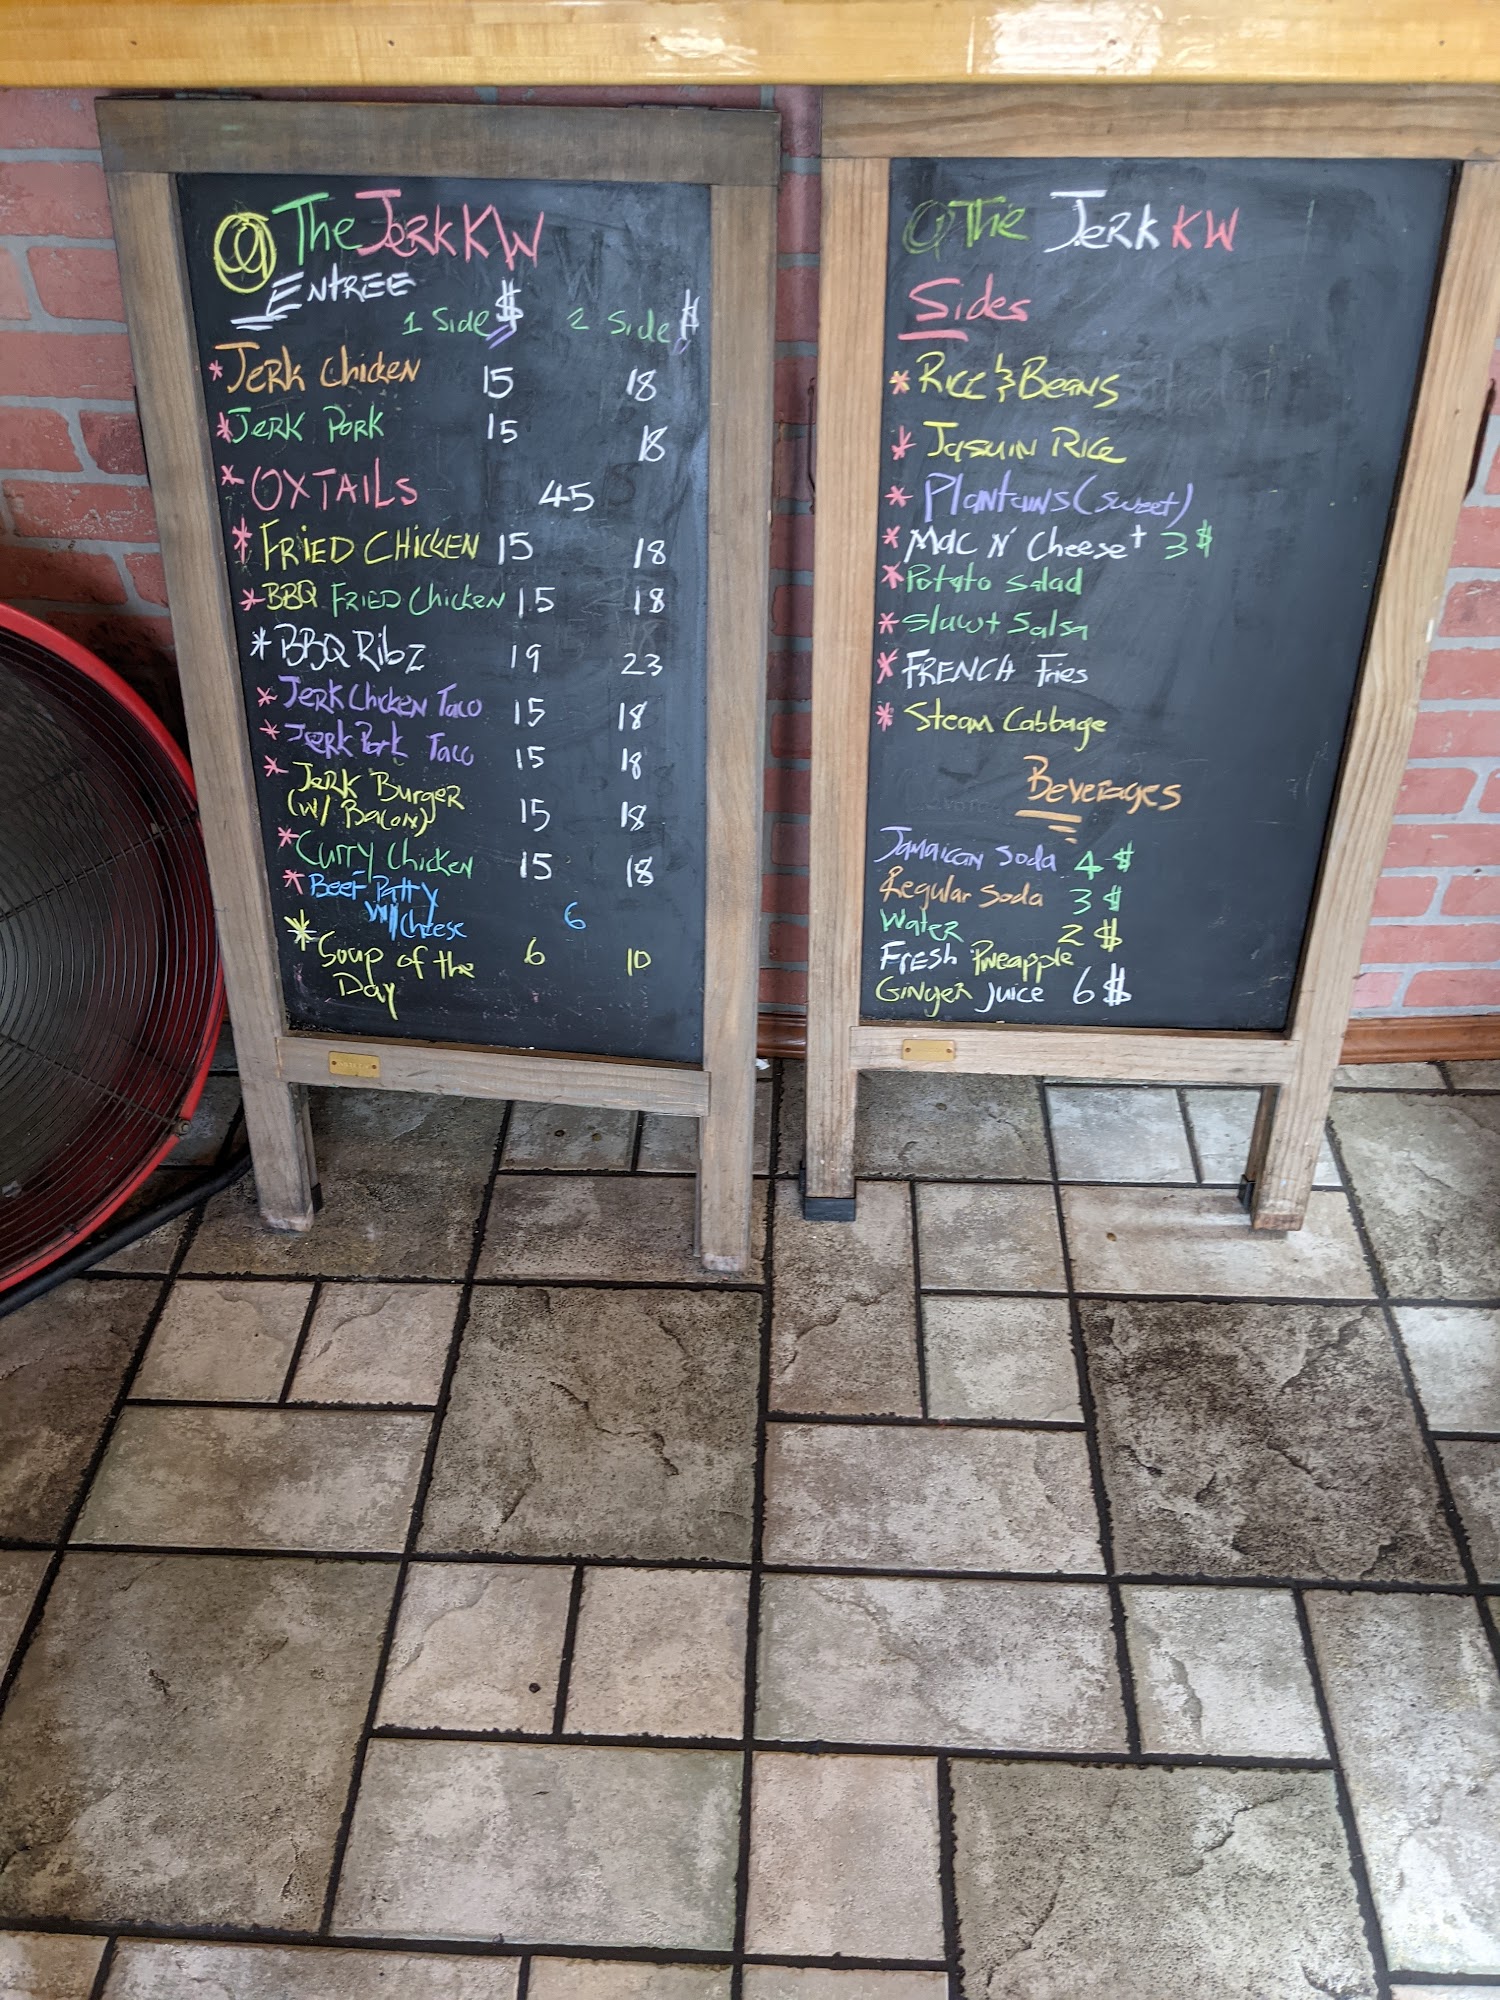 @ The Jerk KW
Entree
1 Side $ 2 Side $
* Jerk Chicken 15 18
* Jerk Pork 15 18
* OXTAILS 45
* FRIED CHICKEN 15 18
* BBQ FRIED Chicken 15 18
* BBQ Ribz 19 23
* Jerk Chicken Taco 15 18
* Jerk Pork Taco 15 18
* Jerk Burger
(w/ Bacon) 15 18
* Curry Chicken 15 18
* Beef Patty
w/ Cheese 6
* Soup of the 6 10
Day
@ The Jerk KW
Sides
* Rice & Beans
* Jasmin Rice
* Plantains (sweet)
* Mac N' Cheese + 3 $
* Potato Salad
* Slaw + Salsa
* FRENCH Fries
* Steam Cabbage
Beverages
Jamaican Soda 4 $
Regular Soda 3 $
Water 2 $
Fresh Pineapple
Ginger Juice 6 $